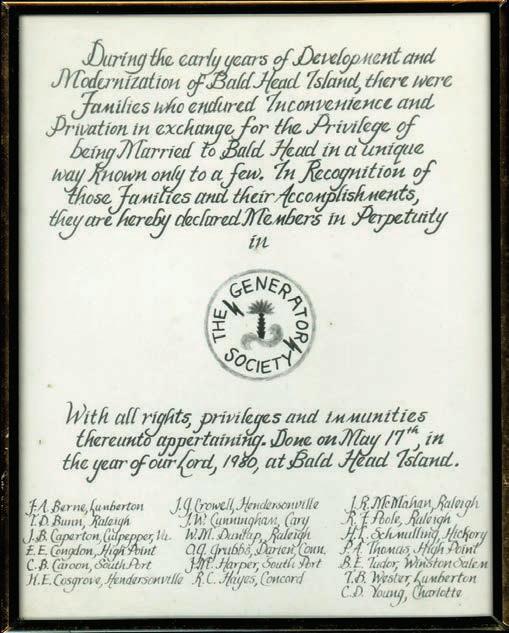 During the early years of Development and
Modernization of Bald Head Island, there were
Families who endured Inconvenience and
Privation in exchange for the Privilege of
being Married to Bald Head in a unique
way known only to a few. In Recognition of
those Families and their Accomplishments,
they are hereby declared Members in Perpetuity
in
THE GENERATOR
SOCIETY
With all rights, privileges and immunities
thereunto appertaining. Done on May 17th, in
the year of our Lord, 1980, at Bald Head Island.
F.A. Berne, Lumberton
T.D. Bunn, Raleigh
J.B. Caperton, Culpepper, Va.
E.E. Congdon, High Point
C.B. Caroon, South Port
H.E. Cosgrove, Hendersonville
J.G. Crowell, Hendersonville
J.W. Cunningham, Cary
W.M. Dunlap, Raleigh
O.G. Grubbs, Darien, Conn.
J.M. Harper, South Port
R.C. Hayes, Concord
J.R. McMahan, Raleigh
R.F. Poole, Raleigh
H.L. Schmulling, Hickory
F.A. Thomas, High Point
B.E. Tudor, Winston Salem
T.B. Wester, Lumberton
C.D. Young, Charlotte